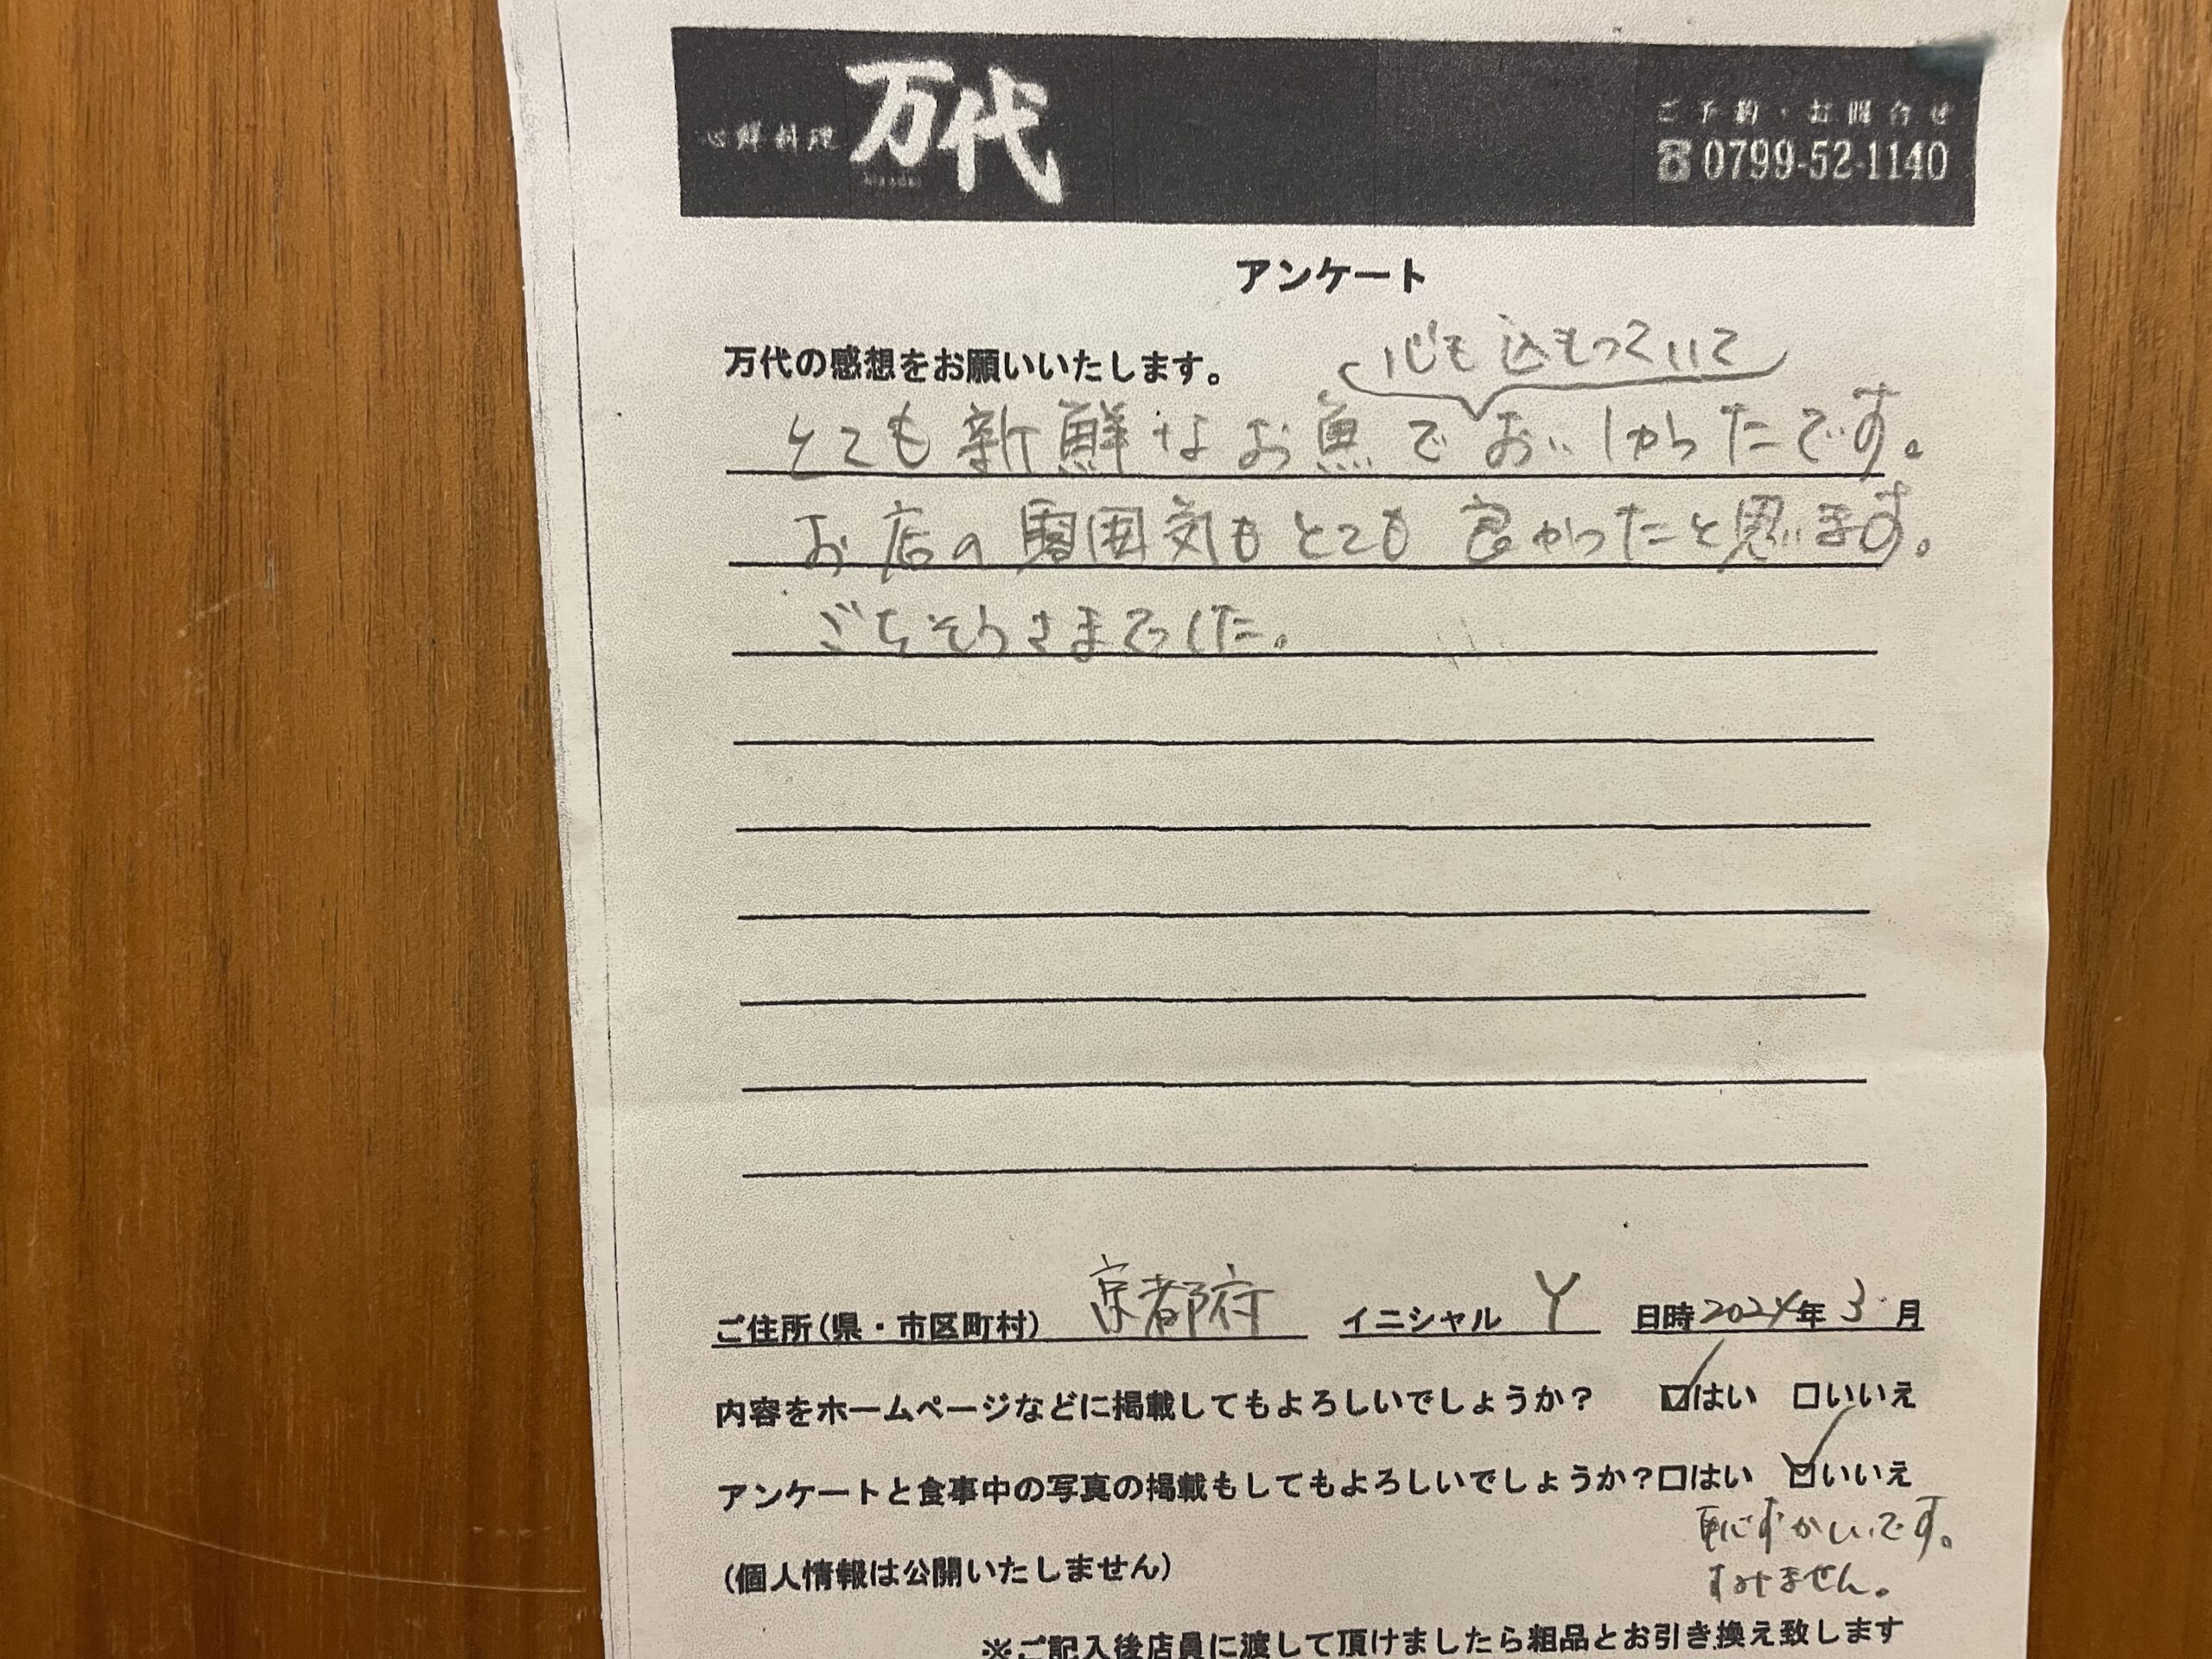 心鮮料理 万代
ご予約・お問合せ
☎0799-52-1140
アンケート
万代の感想をお願いいたします。
心も込もっていて
とても新鮮なお魚でおいしかったです。
お店の雰囲気もとても良かったと思います。
ごちそうさまでした。
ご住所(県・市区町村) 京都府 イニシャル Y 日時2024年3月
内容をホームページなどに掲載してもよろしいでしょうか? ☑はい □いいえ
アンケートと食事中の写真の掲載もしてもよろしいでしょうか?□はい ☑いいえ
恥ずかしいです。
(個人情報は公開いたしません)
すみません。
※ご記入後店員に渡して頂けましたら粗品とお引き換え致します